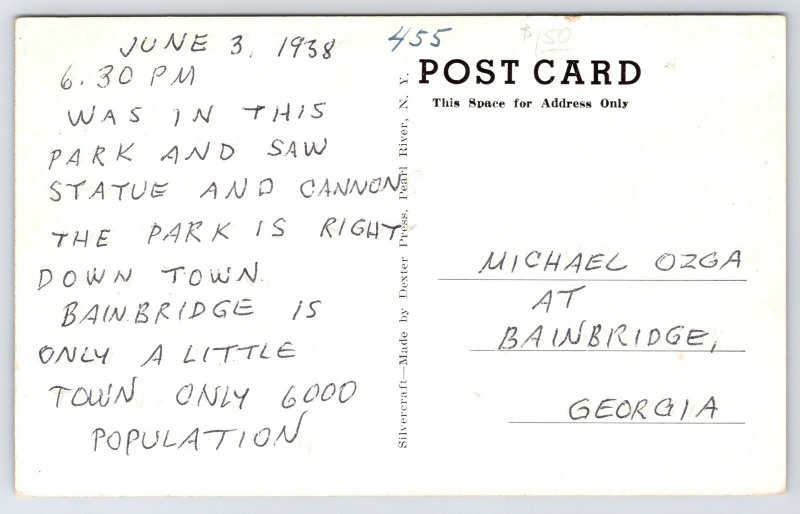 JUNE 3, 1938
6.30 PM
WAS IN THIS
PARK AND SAW
STATUE AND CANNON
THE PARK IS RIGHT
DOWN TOWN.
BAINBRIDGE IS
ONLY A LITTLE
TOWN ONLY 6000
POPULATION
455
$1.50
POST CARD
This Space for Address Only
Silvercraft—Made by Dexter Press, Pearl River, N. Y.
MICHAEL OZGA
AT
BAINBRIDGE,
GEORGIA